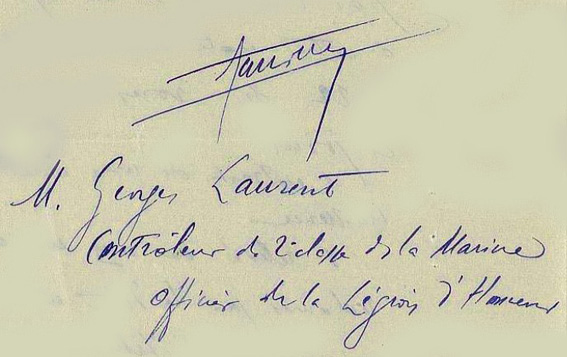 M. Georges Laurent
Contrôleur de 2e classe de la Marine
officier de la Légion d'Honneur